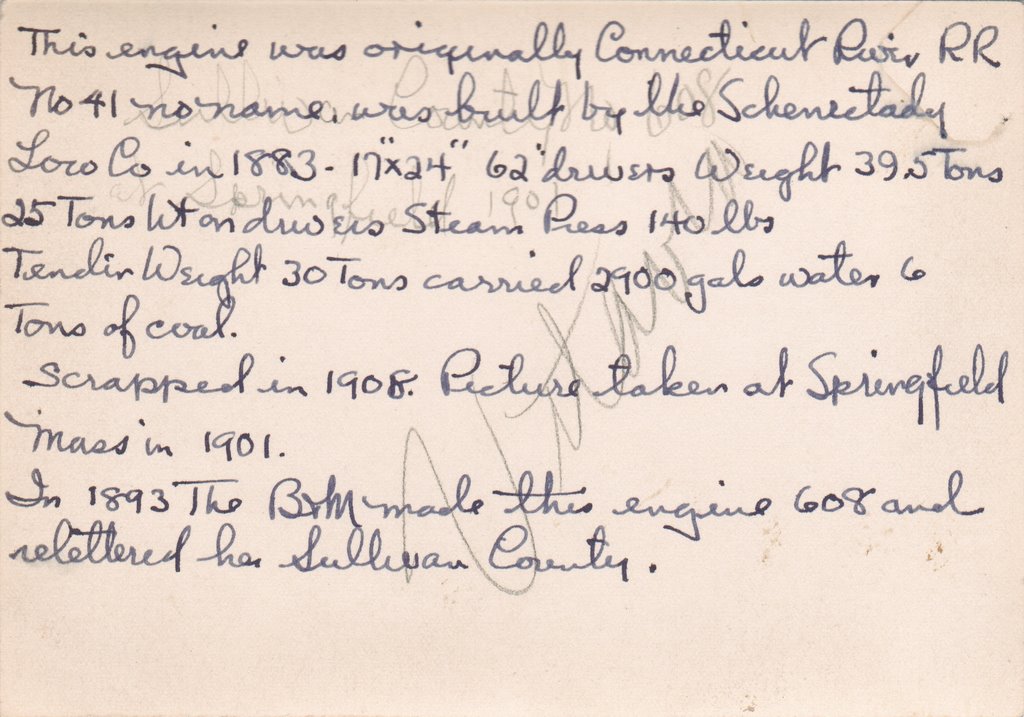 This engine was originally Connecticut River RR
No 41 no name. was built by the Schenectady
Loco Co in 1883 - 17"x24" 62" drivers Weight 39.5 Tons
25 Tons Wt on drivers Steam Press 140 lbs
Tender Weight 30 Tons carried 2900 gals water 6
Tons of coal.
Scrapped in 1908. Picture taken at Springfield
Mass in 1901.
In 1893 The B&M made this engine 608 and
relettered her Sullivan County.
Sullivan County No 608
at Springfield 1901